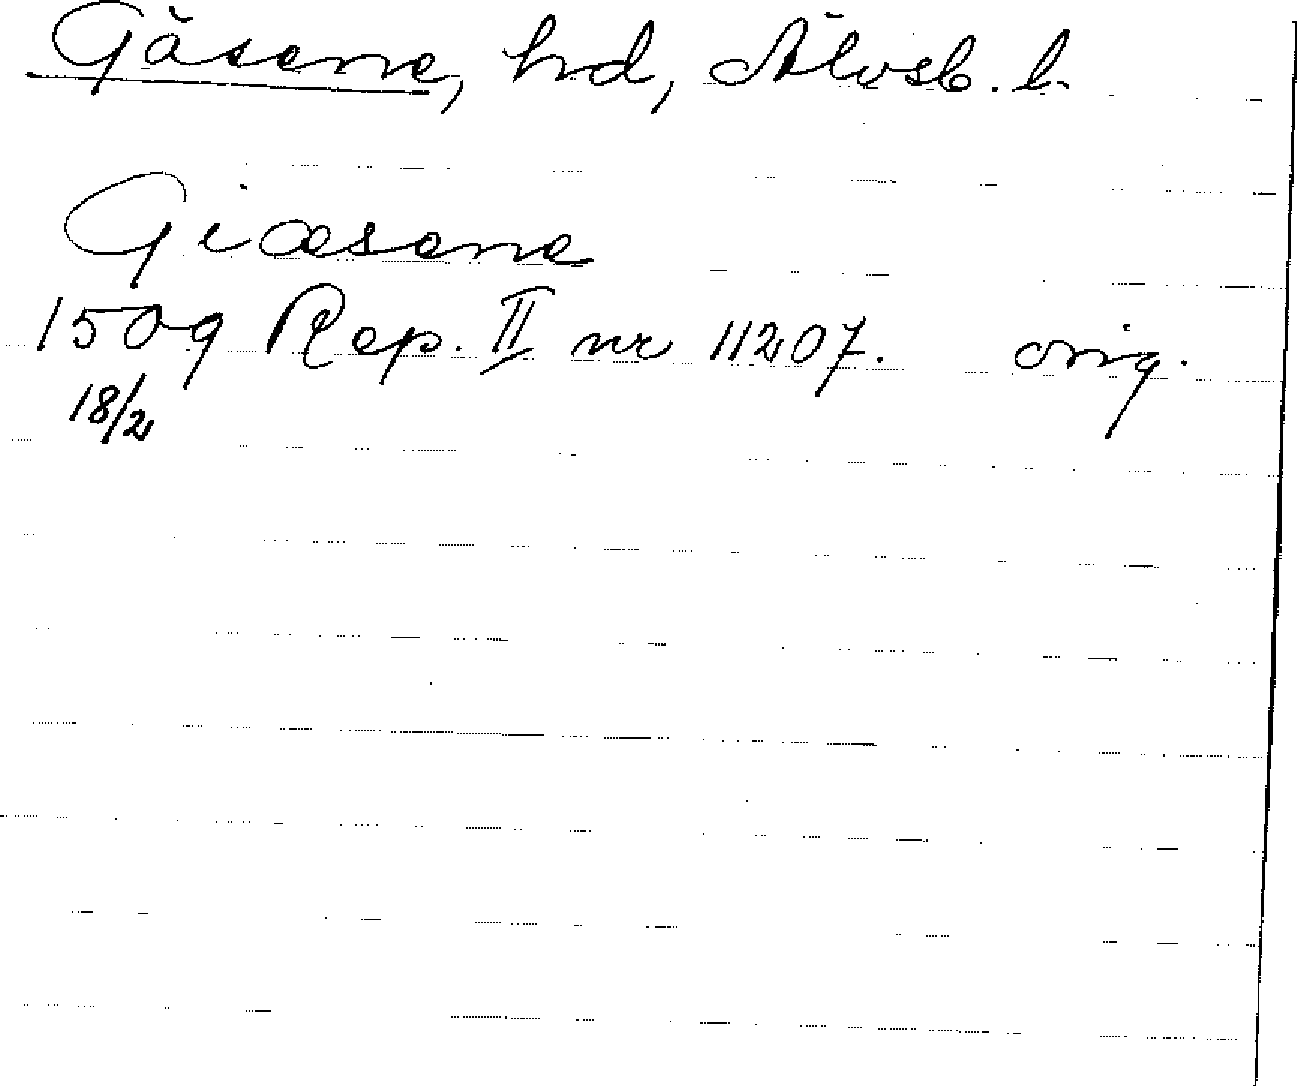 Gäsene, hd, Älvsb. l.
Giæsene
1509 Rep. II nr 11207. orig.
18/2